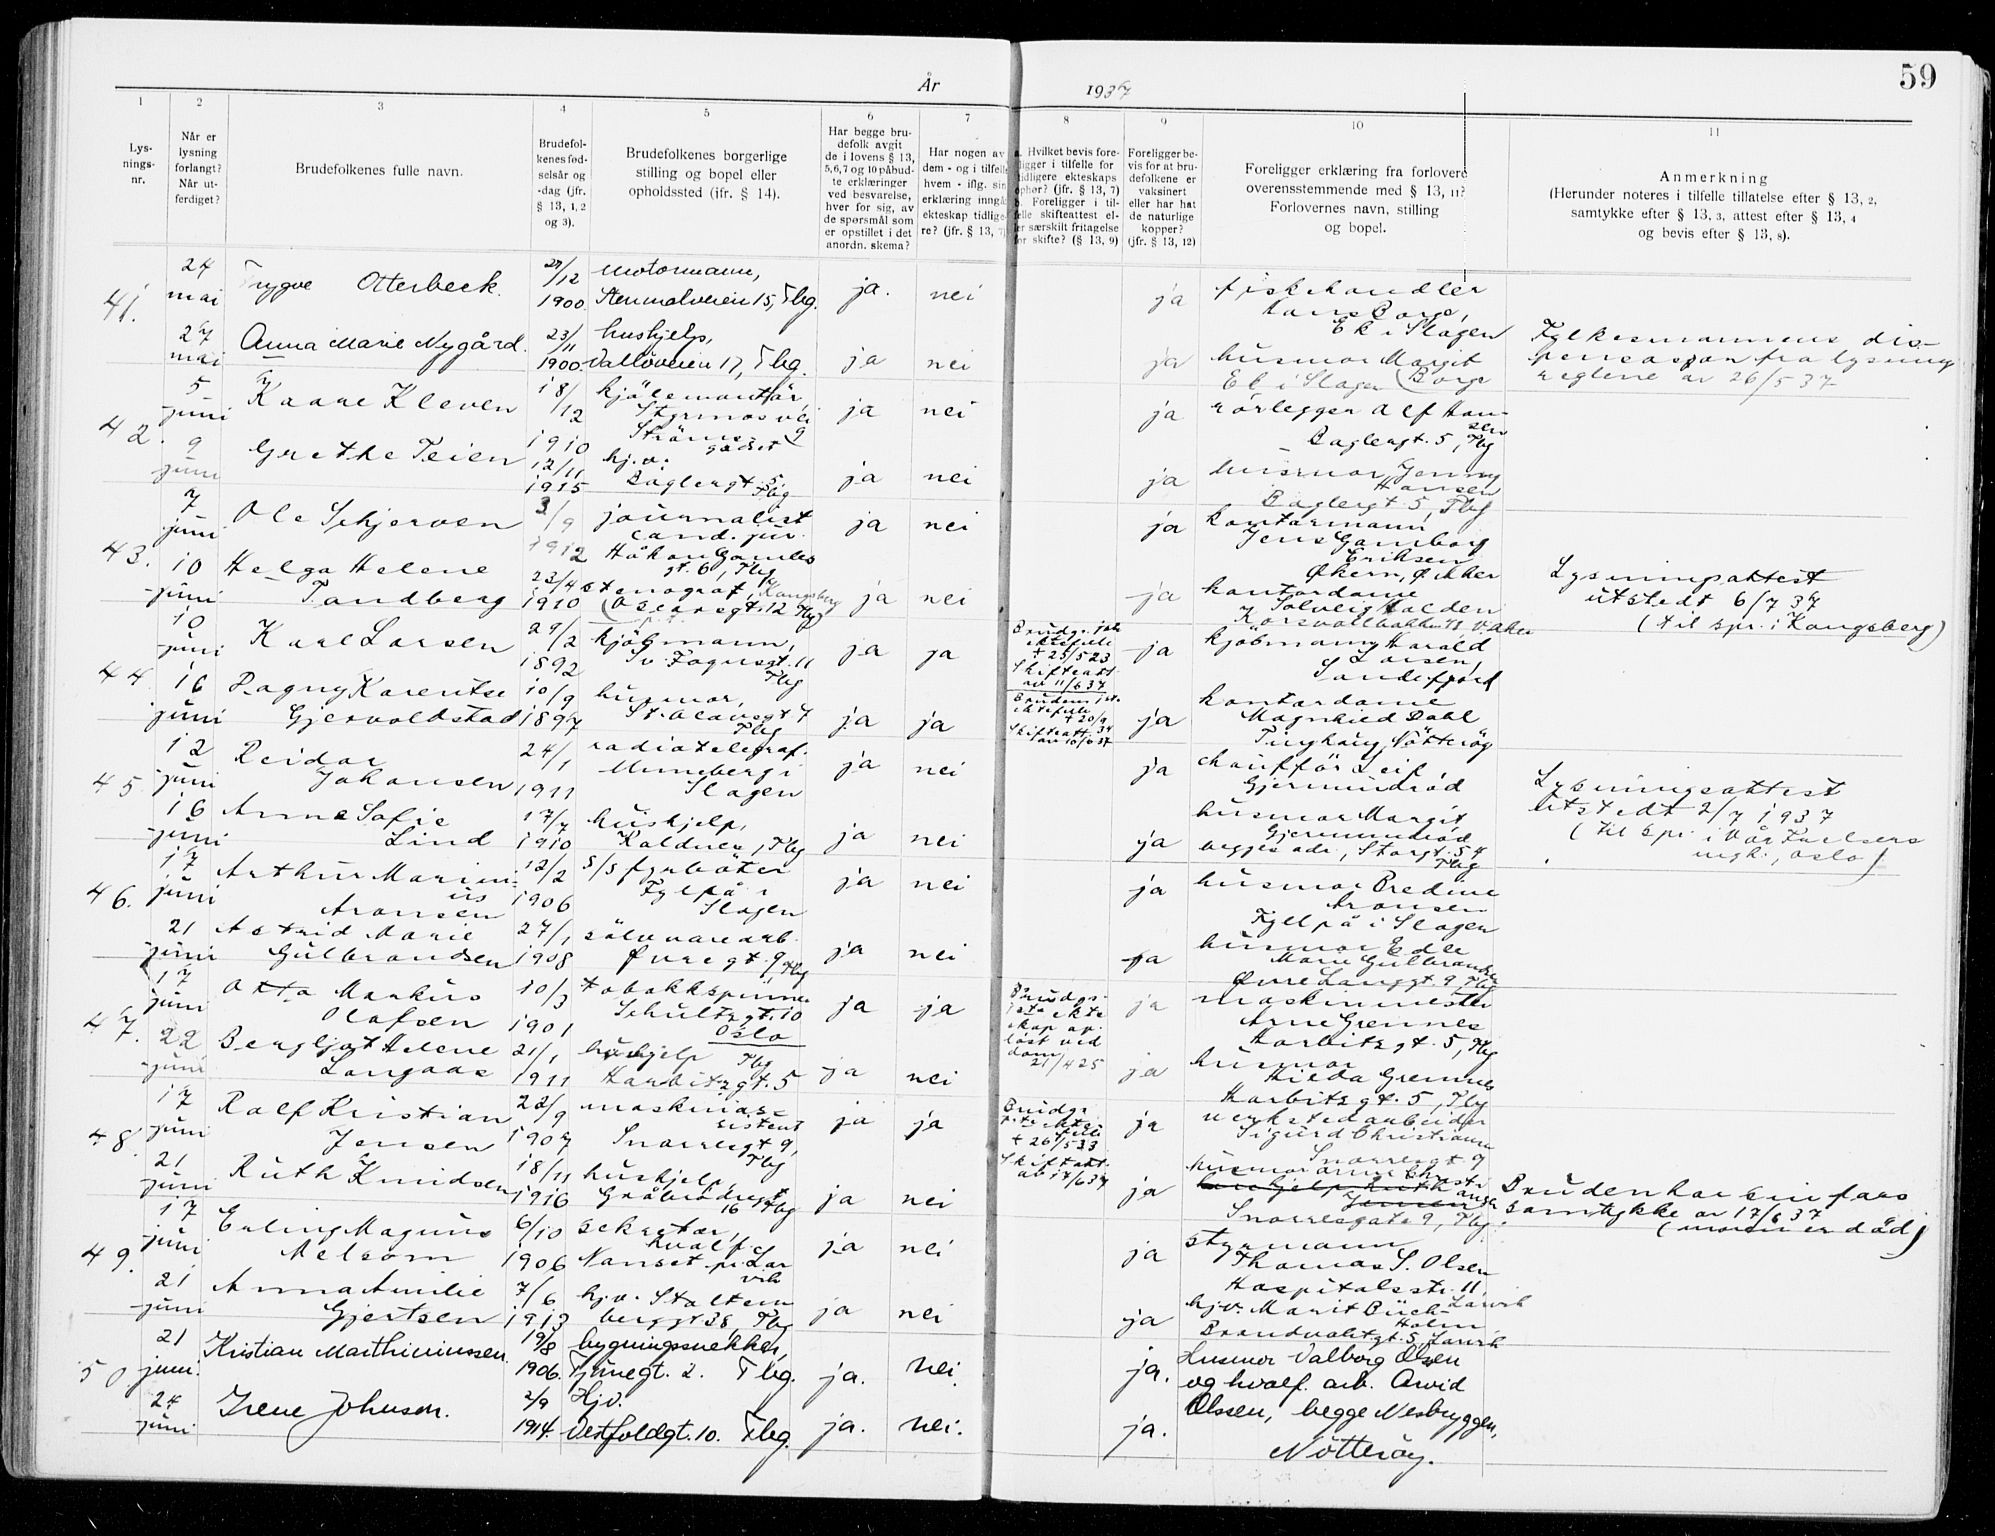 59
År 1937
1 2 3 4 5 6 7 8 9 10 11
Lys-
nings-
nr.
Når er
lysning
forlangt?
Når ut-
ferdiget?
Brudefolkenes fulle navn.
Brudefol-
kenes fød-
selsår og
-dag (jfr.
§ 13, 1, 2
og 3).
Brudefolkenes borgerlige
stilling og bopel eller
opholdssted (jfr. § 14).
Har begge bru-
defolk avgit
de i lovens § 13,
5, 6, 7 og 10 påbud-
te erklæringer
ved besvarelse,
hver for sig, av
de spørsmål som
er opstillet i det
anordn. skema?
Har nogen av
dem - og i tilfelle
hvem - iflg. sin
erklæring inngå
ekteskap tidlige-
re? (jfr. § 13, 7)
a. Hvilket bevis fore-
ligger i tilfelle for
tidligere ekteskaps
ophør? (jfr. § 13, 7)
b. Foreligger i til-
felle skifteattest el-
ler særskilt fritagelse
for skifte? (§ 13, 9)
Foreligger be-
vis for at bru-
defolkene er
vaksinert
eller har hat
de naturlige
kopper?
(jfr. § 13, 12)
Foreligger erklæring fra forlovere
overensstemmende med § 13, 11?
Forlovernes navn, stilling
og bopel.
Anmerkning
(Herunder noteres i tilfelle tillatelse efter § 13, 2,
samtykke efter § 13, 3, attest efter § 13, 4
og bevis efter § 13, 8).
41.
24
mai
Trygve Otterbeck
27/12
1900
motormann,
Stenmalveien 15, Tbg.
ja.
nei
ja
fiskehandler
Hans Borge,
Ek i Slagen
27
mai
Anna Marie Nygård
23/11
1900
hushjelp,
Valløveien 17, Tbg.
ja
nei
ja
husmor Margit
Ek i Slagen (Borge
Fylkesmannens dis-
pensasjon fra lysning
reglene av 26/5 37
42.
5
juni
Kaare Kleven
18/
12
1910
kjölemontör,
Styrmosvei
9
ja
nei
ja
rörlegger Alf Han-
sen
Baglergt. 5, Tbg
9
juni
Grethe Teien
12/11
1915
hj.v.
Baglergt. 5,
Tbg
ja
nei
ja
husmor Jenny
Hansen
Baglergt 5, Tbg
43.
7
juni
Ole Schjerven
3/9
1912
journalist
cand. jur.
Håkon Gamles
gt. 6, Tbg
ja
nei
ja
kontormann
Jens Gamborg
Eriksen
Økern, Ø. Aker
10
juni
Helga Helene
Tandberg
23/4
1910
stenograf, Kongsberg
(Oscarsgt. 12 Tbg)
ja
nei
ja
kontordame
Solveig Halden
V. Aker
Lysningsattest
utstedt 6/7 37
(til spr. i Kongsberg)
44
10
juni
Karl Larsen
29/2
1892
kjöbmann,
Sv. Foynsgt. 11
Tbg
ja
ja
Brudgr. forr
ektefelle
+ 25/5 23
Skifteatt.
av 11/6 37
ja
kjöbmann Harald
Larsen,
Sandefjord
16
juni
Ragny Karentse
Gjervoldstad
10/9
1897
husmor,
St. Olavsgt 7
Tbg
ja
ja
Brudens
ektefelle
+ 20/9
34
Skifteatt.
av 10/6 37
ja
kontordame
Magnhild Dahl
Tinghaug, Nötteröy
45
12
juni
Reidar
Johansen
24/1
1911
radiotelegraf.
Munneberg i
Slagen
ja
nei
ja
chaufför Leif
Gjermundröd
16
juni
Anna Sofie
Lind
17/7
1910
hushjelp,
Kaldnes, Tbg
ja
nei
ja
husmor Margit
Gjermundröd
begges adr., Storgt. 54
Tbg
Lysningsattest
utstedt 2/7 1937
(til spr. i Vår Frelsers
mgh., Oslo)
46.
17
juni
Arthur Marini-
us
Aronsen
12/2
1906
s/s fyrböter
Fylpå i
Slagen
ja
nei
ja
husmor Bredine
Aronsen
Fyllpå i Slagen
21
juni
Astrid Marie
Gulbrandsen
27/1
1908
sölvvarearb.
Øvregt. 9, Tbg
ja
nei
ja
husmor Edle
Marie Gulbrandsen
Øvre Langgt 9, Tbg
47.
17
juni
Otto Markus
Olafsen
10/3
1901
tobakkspinner
Schultzgt. 10
Oslo
ja
ja
Brudgs.
siste ekte
skap op-
löst ved
dom
21/4 25
ja
maskinmester
Arne Grennes
Harbitzgt. 5, Tbg
22
juni
Bergljot Helene
Langaas
21/1
1911
hushjelp
Tbg
Harbitzgt. 5
ja
nei
ja
husmor
Hilda Grennes
Harbitzgt. 5, Tbg
48.
17
juni
Ralf Kristian
Jensen
22/9
1907
maskinas-
sistent
Snorresgt 9,
Tbg
ja
ja
Brudgr.
siste ekte-
felle
+ 26/5 33
Skifteatt.
av 17/6 37
ja
verkstedarbeider
Sigurd Christiansen
Snorresgt 9
21
juni
Ruth Knudsen
18/11
1916
hushjelp,
Gråbrødregt
16 Tbg
ja
nei
ja
husmor Anna Christi-
ansen
Snorresgate 9, Tbg.
Bruden har sin fars
samtykke av 17/6 37
(moren er död)
49.
17
juni
Erling Magnus
Melsom
6/10
1906
sekretær,
hvalf.
Nanset pr. Lar
vik
ja
nei
ja
styrmann
Thomas S. Olsen
Hospitalsstr. 11,
Larvik
21
juni
Anna Amilie
Gjertsen
7/6
1913
hj.v. Stolten-
berggt 38, Tbg
ja
nei
ja
hj.v. Marit Buch-
Holm
Brandvaktgt. 5, Larvik
50.
21
juni.
Kristian Marthiniussen.
19/8
1906.
bygningssnekker,
Tjømegt. 2. Tbg.
ja.
nei.
ja.
Husmor Valborg Olsen
og hvalf. arb. Arvid
Olssen, begge Nesbryggen,
Nötteröy.
24
juni
Irene Johnsen.
2/9
1914.
Hjv.
Vestfoldgt. 10. Tbg.
ja.
nei.
ja.